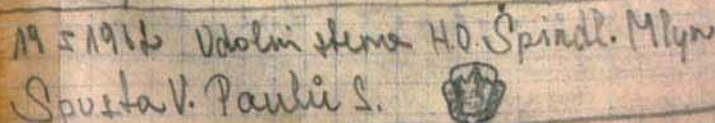 19 5 1962 Udolni stena H.O. Špindl. Mlyn
Spusta V. Paulů S.